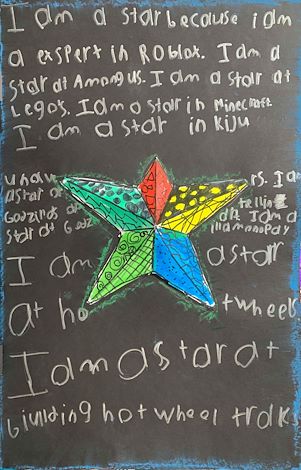 I am a star because i am
a expert in Roblox. I am a
star at Among us. I am a star at
Legos. I am a star in Minecraft
I am a star in kiju
u have rs. I am
a star at tellin
Godzilla at all I am a
star at Godz monopoly
I am a star
at ho twheels
I am a star at
biulding hot wheel traks